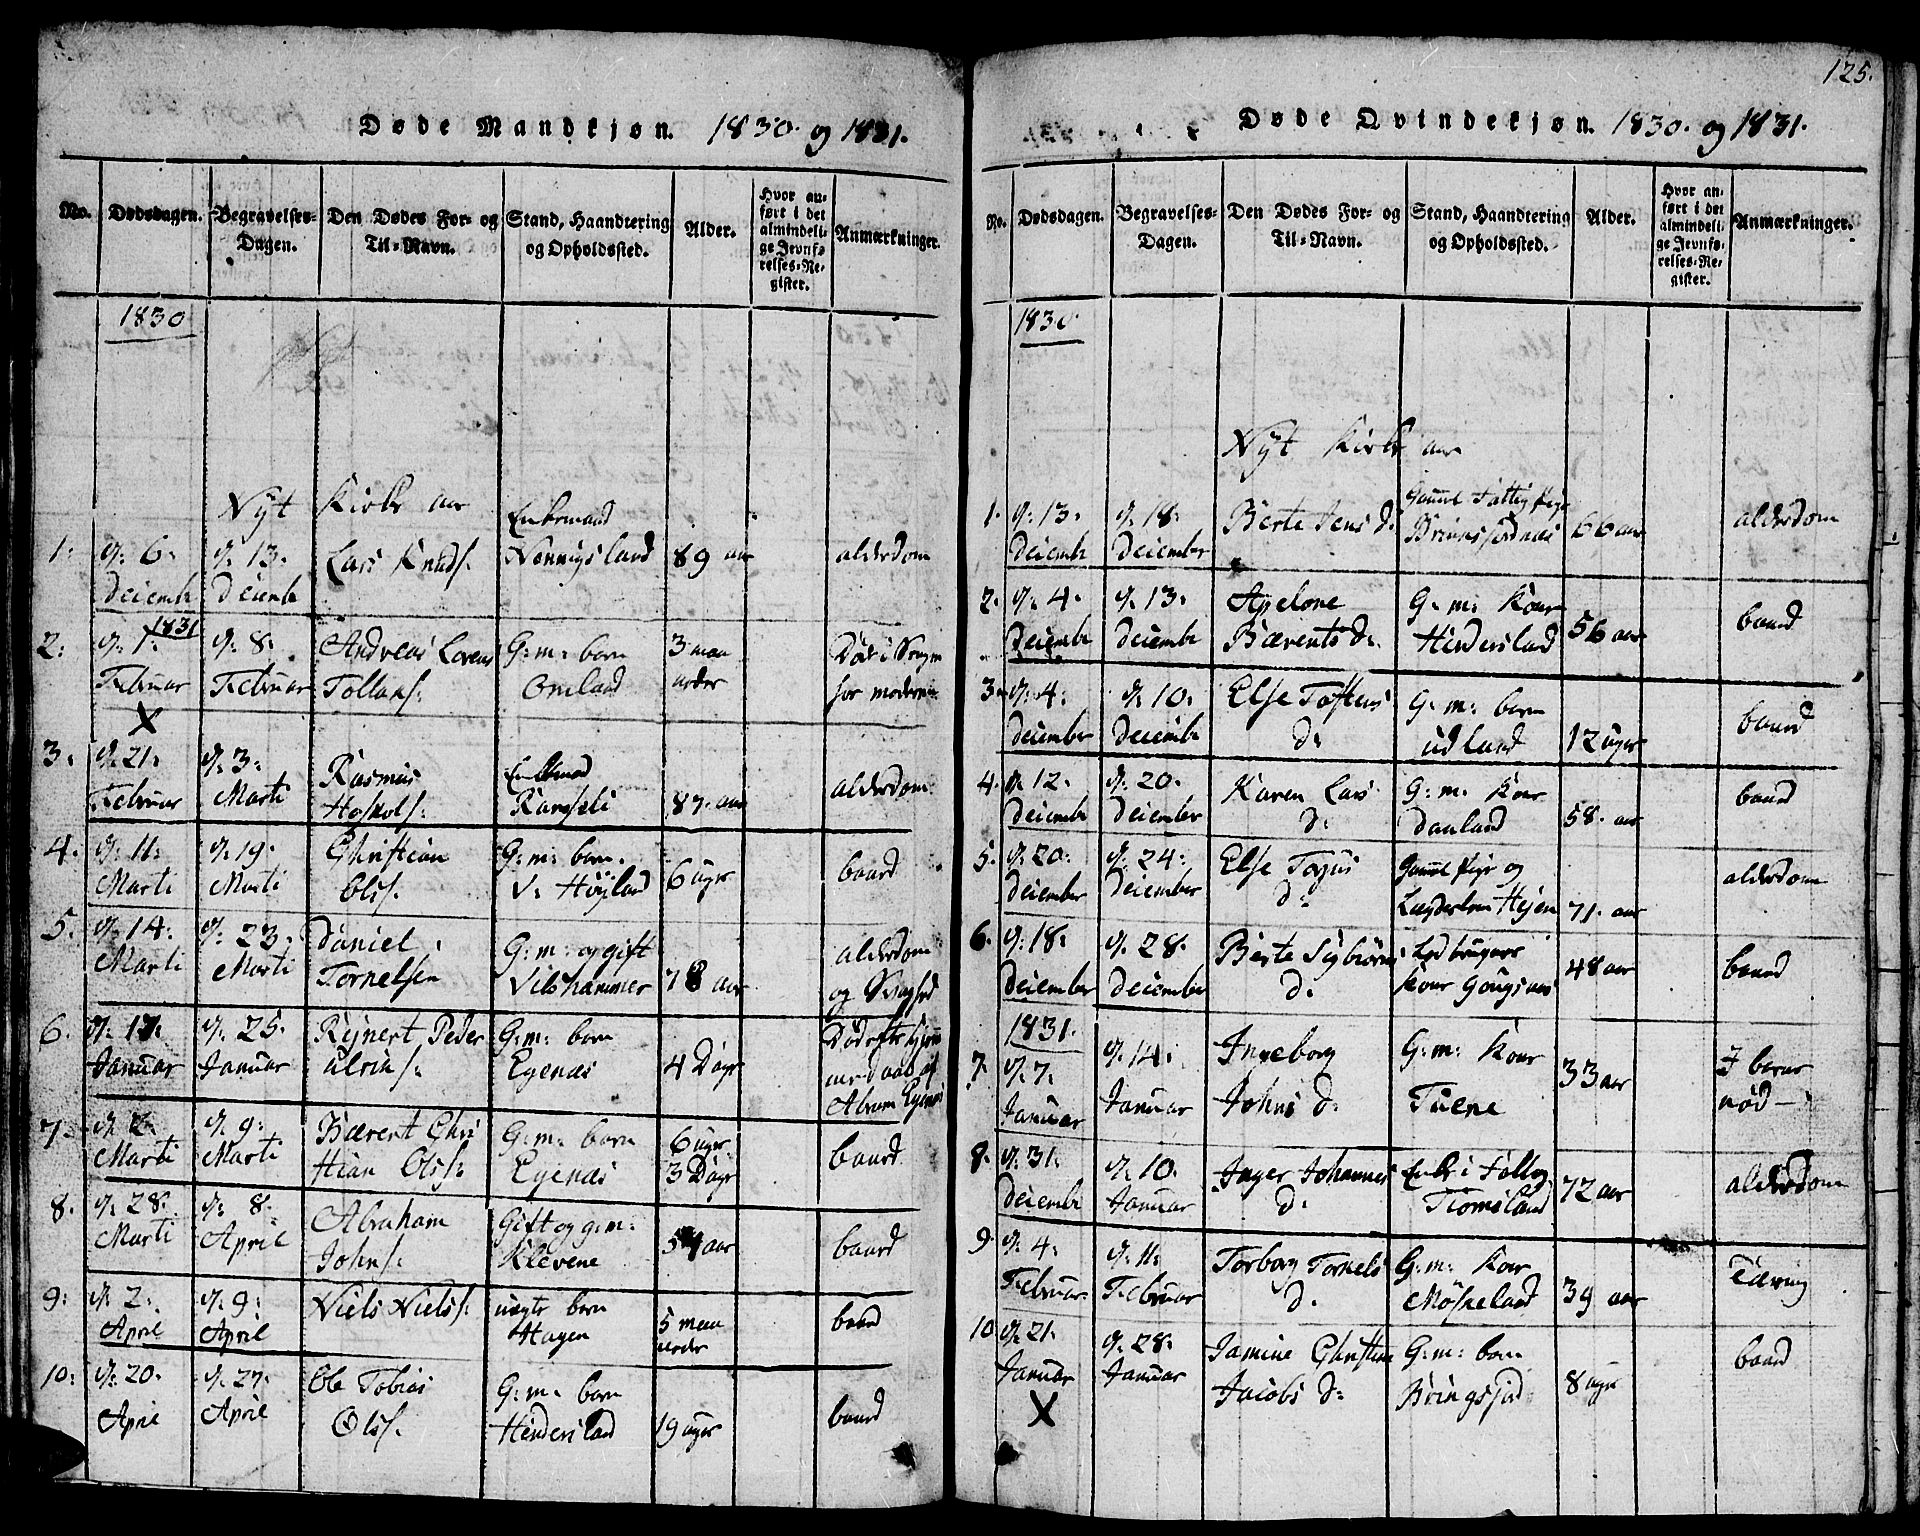 Døde Mandkjøn. 1830. og 1831.
No. Dødsdagen. Begravelses-Dagen. Den Dødes For- og Til-Navn. Stand, Haandtering og Opholdssted. Alder. Hvor anført i det almindelige Jevnførelses-Register. Anmærkninger.
1830
Nyt Kirke aar
1: d: 6: Decembr d: 13: Decembr Lars Knuds. Enkemand 89 aar alderdom
1831
2: d: 1: Februar d: 8: Februar Andreas Lorens G: m: barn Omland 3 maaneder
X
3: d: 21: Februar d: 3: Marti Rasmus 87 aar alderdom
4. d: 11: Marti d: 19: Marti Christian Ols. G: m: barn V: Höyland 6 uger baard
5. d: 14: Marti d: 23: Marti Daniel Tornelsen G: m: og gift Vilshammer 78 aar alderdom og Svaghed
6. d: 17: Januar d: 25: Januar Rejnert Peder G: m: barn Egenæs 4 Dage
7: d: 2: Marti d: 9: Marti Bærent Christian Ols. G: m: barn Egenæs 6 uger 3 Dage baard
8. d: 28: Marti d: 8: April Abraham Johns. Gift og g: m: Klevene aar baard
9: d: 2: April d: 9: April Niels Niels. uægte barn Hagen 5 maaneder baard
10: d: 20. April d: 27: April Ole Tobias Ols. G: m: barn Heddersland 19 uger baard
125.
Døde Qvindekjøn. 1830. og 1831.
No. Dødsdagen. Begravelses-Dagen. Den Dødes For- og Til-Navn. Stand, Haandtering og Opholdssted. Alder. Hvor anført i det almindelige Jevnførelses-Register. Anmærkninger.
1830
Nyt Kirke aar
1. d: 13: Decembr d: 18: December Berte Jens d: Gaml Fattig Pige 66 aar alderdom
2. d: 4. Decembr d: 13: Decembr Apelone Bærents d: G: m: Kone Heddersland 56 aar baard
3. d: 4: December d: 10: Decembr Else d: G: m: barn udland 12 uger baard
4. d: 12: Decembr d: 20: December Karen Lars d: G: m: Kone Dauland 58. aar baard
5. d: 20: December d: 24: December Else Torjus d: Gaml Pige og 71. aar alderdom
6. d: 18: December d: 28. December Berte d: Kone 48 aar baard
1831.
7. d: 7: Januar d: 14: Januar Ingeborg Johns d: G: m: Kone Tuene 33 aar I barnsnød
8. d: 31: Decembr d: 10. Januar Inger Johannes d: Enke 72 aar alderdom
9 d: 4: Februar d: 11: Februar Torborg Tornels d: G: m: Kone Möskeland 39 aar Tæring
10 d: 21. Januar d: 28: Januar Jamine Christine Jacobs d: G: m: barn Bringsjord 8 uger baard
X